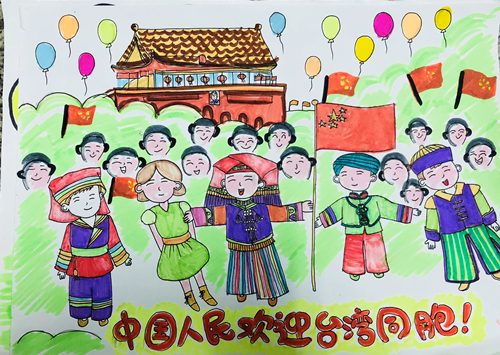 中国人民欢迎台湾同胞!